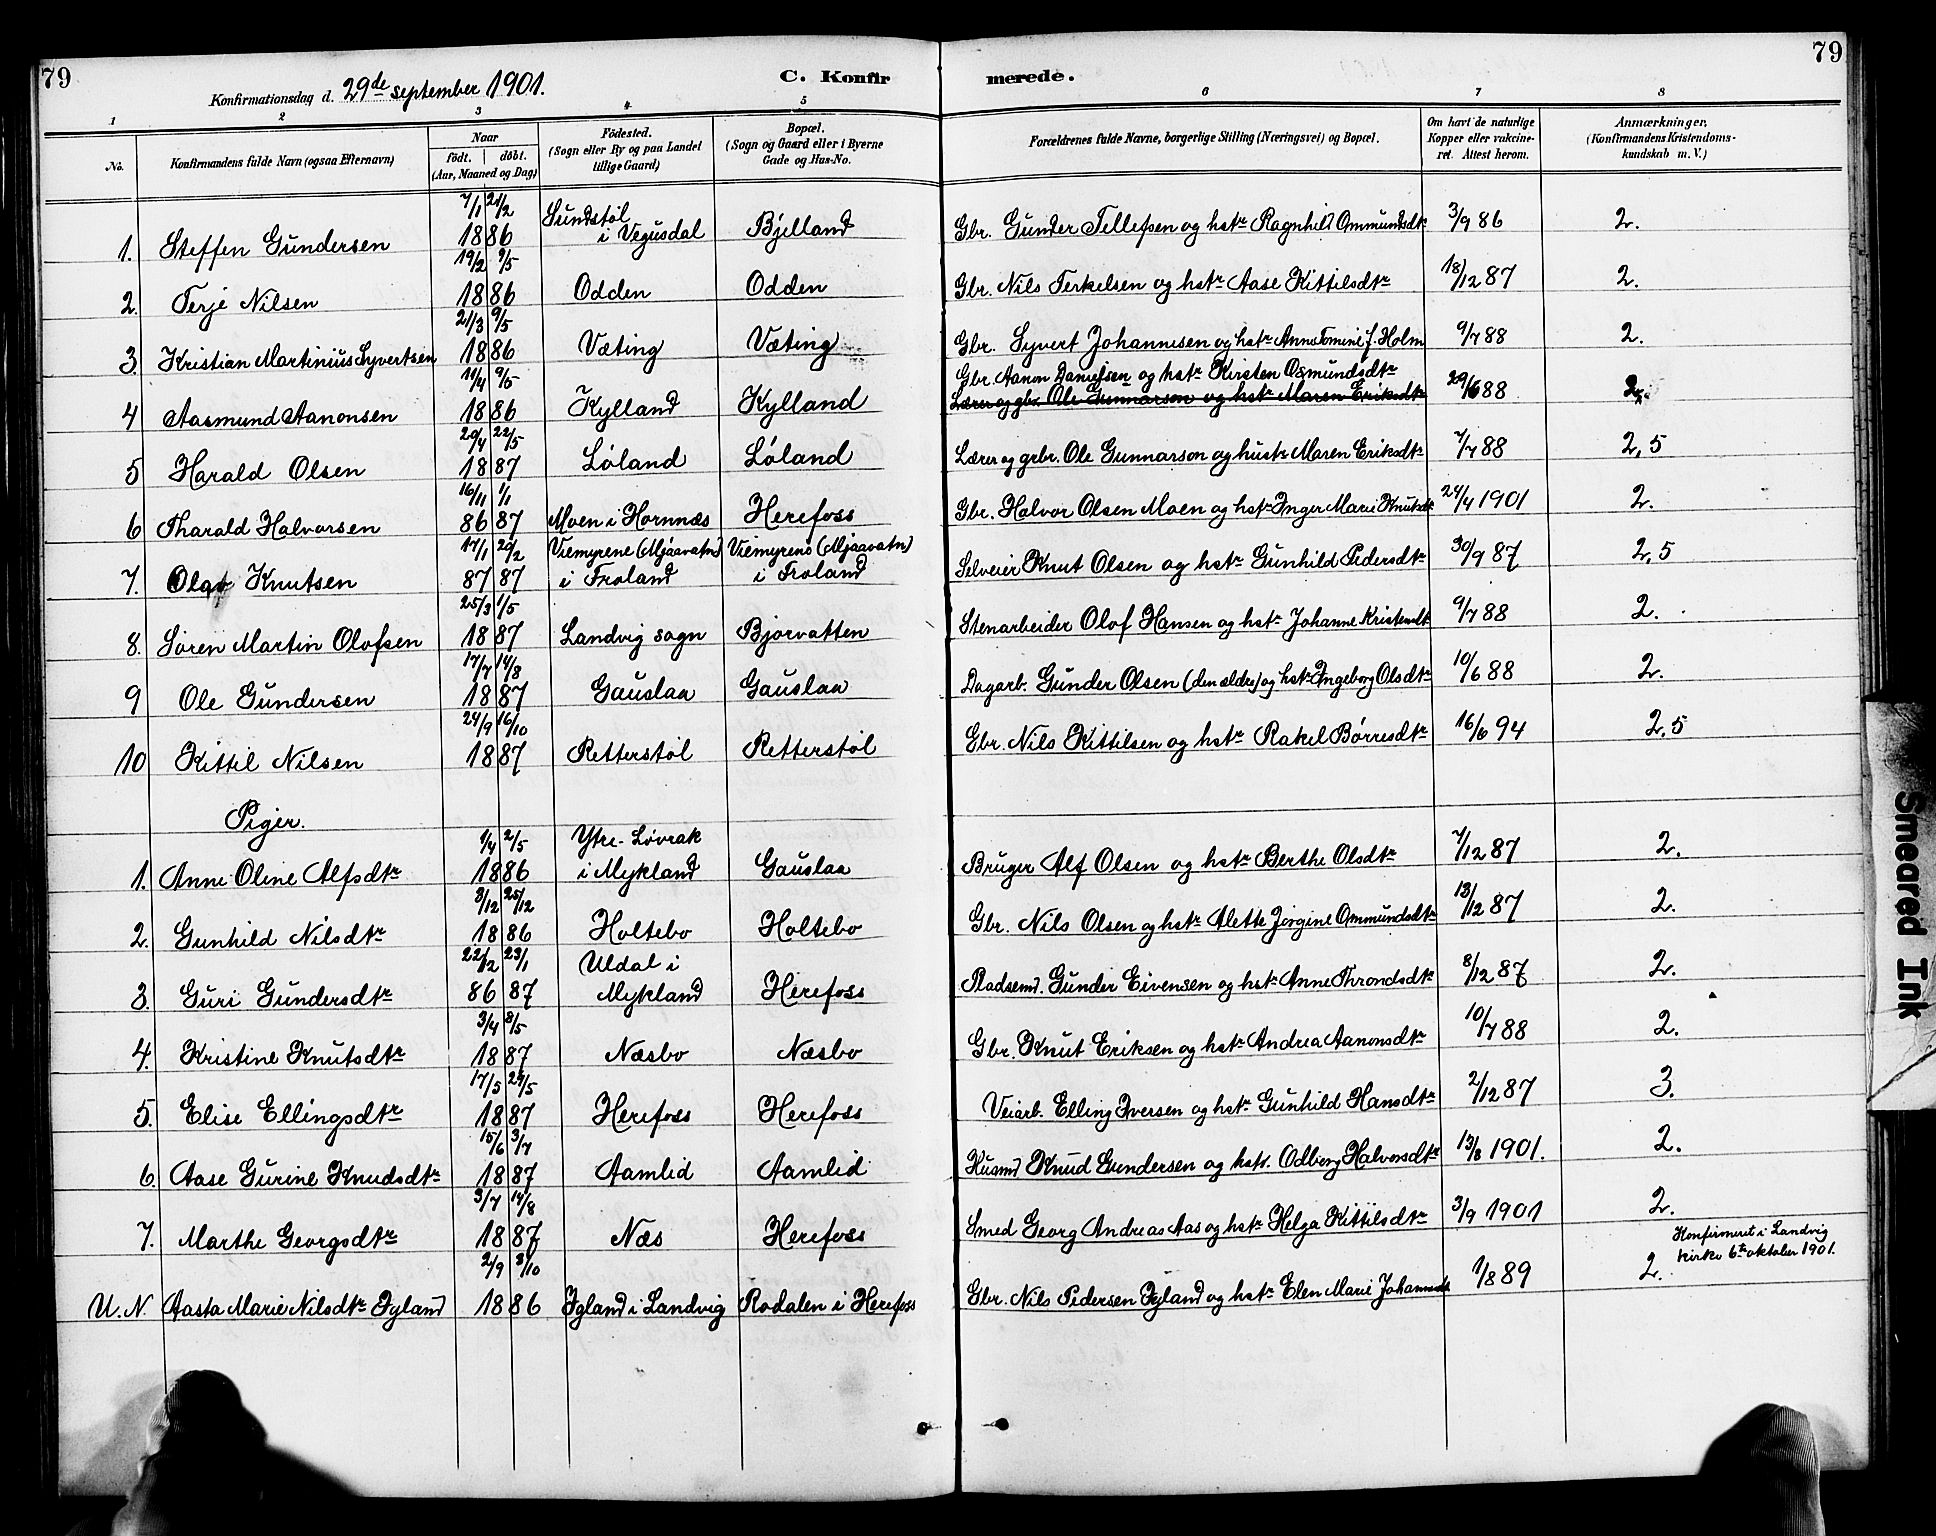 79
79
C. Konfirmerede.
Konfirmationsdag d. 29de september 1901.
1 2 3 4 5 6 7 8
No.
Konfirmandens fulde Navn (ogsaa Efternavn)
Naar
födt. | döbt.
(Aar, Maaned og Dag)
Födested.
(Sogn eller By og paa Landet
tillige Gaard)
Bopæl.
(Sogn og Gaard eller i Byerne
Gade og Hus-No.
Forældrenes fulde Navne, borgerlige Stilling (Næringsvei) og Bopæl.
Om havt de naturlige
Kopper eller vakcineret.
Attest herom.
Anmærkninger.
(Konfirmandens Kristendomskundskab
m. V.)
1. Steffen Gundersen 7/1 21/2 1886 Sundstøl i Vegusdal Bjelland Gbr. Gunder Tellefsen og hstr Ragnhild Ommundsdtr 3/9 86 2.
2. Terje Nilsen 19/2 9/5 1886 Odden Odden Gbr. Nils Terkelsen og hstr Aase Kittilsdtr 18/12 87 2.
3. Kristian Martinius Syvertsen 21/3 9/5 1886 Væting Væting Gbr. Syvert Johannesen og hstr Anne Tomine f. Holm 9/7 88 2.
4 Aasmund Aanonsen 11/4 9/5 1886 Kylland Kylland Gbr. Aanon Danielsen og hstr Kirsten Osmundsdtr 29/6 88 2.
Lærer og gbr. Ole Gunnarson og hstr Maren Eriksdtr
5 Harald Olsen 20/4 22/5 1887 Løland Løland Lærer og grbr. Ole Gunnarson og hustr Maren Eriksdtr 7/7 88 2,5
6 Tharald Halvorsen 16/11 1/1 86 87 Moen i Hornnæs Herefoss Gbr. Halvor Olsen Moen og hstr Inger Marie Knutsdt 24/4 1901 2.
7. Olav Knutsen 17/1 20/2 87 87 Viemyrene (Mjaavatn) i Froland Viemyrene (Mjaavatn) i Froland Selveier Knut Olsen og hstr Gunhild Pedersdtr 30/9 87 2,5
8. Søren Martin Olofsen 25/3 1/5 1887 Landvig sogn Bjorvatten Stenarbeider Olof Hansen og hstr Johanne Kristensdt 9/7 88 2.
9 Ole Gundersen 17/7 14/8 1887 Gauslaa Gauslaa Dagarb. Gunder Olsen (den ældre) og hstr Ingeborg Olsdtr 10/6 88 2.
10 Kittil Nilsen 24/9 16/10 1887 Retterstøl Retterstøl Gbr. Nils Kittilsen og hstr Rakel Børresdtr 16/6 94 2,5
Piger.
1. Anne Oline Alfsdtr 1/4 2/5 1886 Ytre-Løvrak i Mykland Gauslaa Bruger Alf Olsen og hstr Berthe Olsdtr 7/12 87 2.
2. Gunhild Nilsdtr 3/12 25/12 1886 Holtebo Holtebo Gbr. Nils Olsen og hstr Alette Jørgine Ommundsdtr 13/12 87 2.
3. Guri Gundersdtr 22/12 23/1 86 87 Uldal i Mykland Herefoss Pladsemd. Gunder Eivensen og hstr Anne Throndsdtr 8/12 87 2.
4. Kristine Knutsdtr 3/4 8/5 1887 Næsbo Næsbo Gbr. Knut Eriksen og hstr Andrea Aanonsdtr 10/7 88 2.
5. Elise Ellingsdtr 17/5 29/5 1887 Herefoss Herefoss Veiarb. Elling Iversen og hstr Gunhild Hansdtr 2/12 87 3.
6. Aase Gurine Knudsdtr 15/6 3/7 1887 Aamlid Aamlid Husmd Knud Gundersen og hstr. Odberg Halvorsdtr 13/8 1901. 2.
7. Marthe Georgsdtr 3/7 14/8 1887 Næs Herefoss Smed Georg Andreas Aas og hstr Helga Kittilsdtr 3/9 1901 2.
U.N. Aasta Marie Nilsdtr Igland 2/9 3/10 1886 Igland i Landvig Rodalen i Herefoss Gbr. Nils Pedersen Igland og hstr Elen Marie Johannsdt 1/8 89 2. Konfirmeret i Landvig
kirke 6te oktober 1901.
Smeared Ink